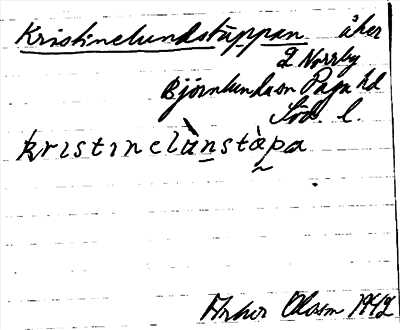 Kristinelundstäppan åker
L Norrby
Björnlunda sn Daga hd
Söd. l.
kristinelùnstàpa
Olsson 1942